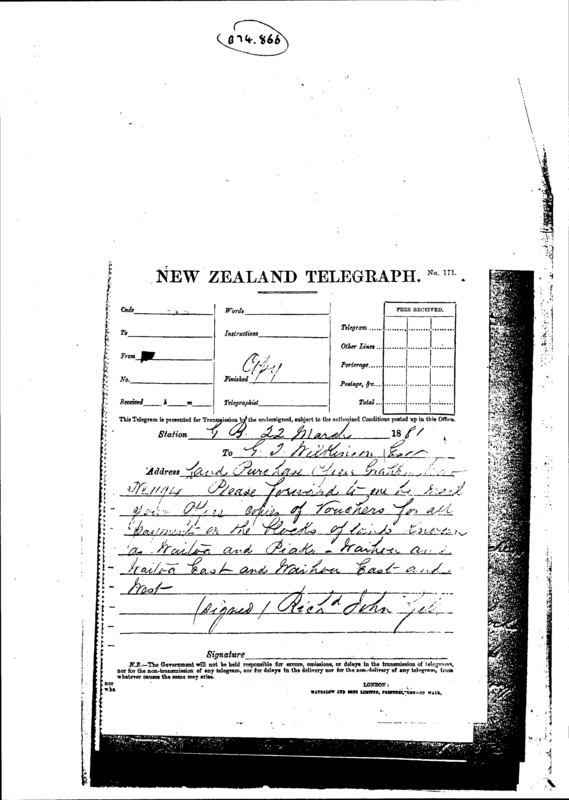 074.866
NEW ZEALAND TELEGRAPH. No. 171.
Code
To
From
No.
Received h. m.
Words
Instructions
Copy
Finished
Telegraphist
FEES RECEIVED.
Telegram
Other Lines
Porterage
Postage, &c.
Total
This Telegram is presented for Transmission by the undersigned, subject to the authorized Conditions posted up in this Office.
Station G B. 22 March 1881
To G. T. Wilkinson Esqr
Address Land Purchase Officer
No. 1194 Please forward to me by mail
your Office copies of Vouchers for all
payments on the Blocks of land known
as Waitoa and Piako - Waihou and
Waitoa East and Waihou East and
West
(signed) Richd John Gill
Signature
N.B.—The Government will not be held responsible for errors, omissions, or delays in the transmission of telegrams,
nor for the non-transmission of any telegram, nor for delays in the delivery nor for the non-delivery of any telegram, from
whatever causes the same may arise.
nor
wha
LONDON:
WATERLOW AND SONS LIMITED, PRINTERS, LONDON WALL.